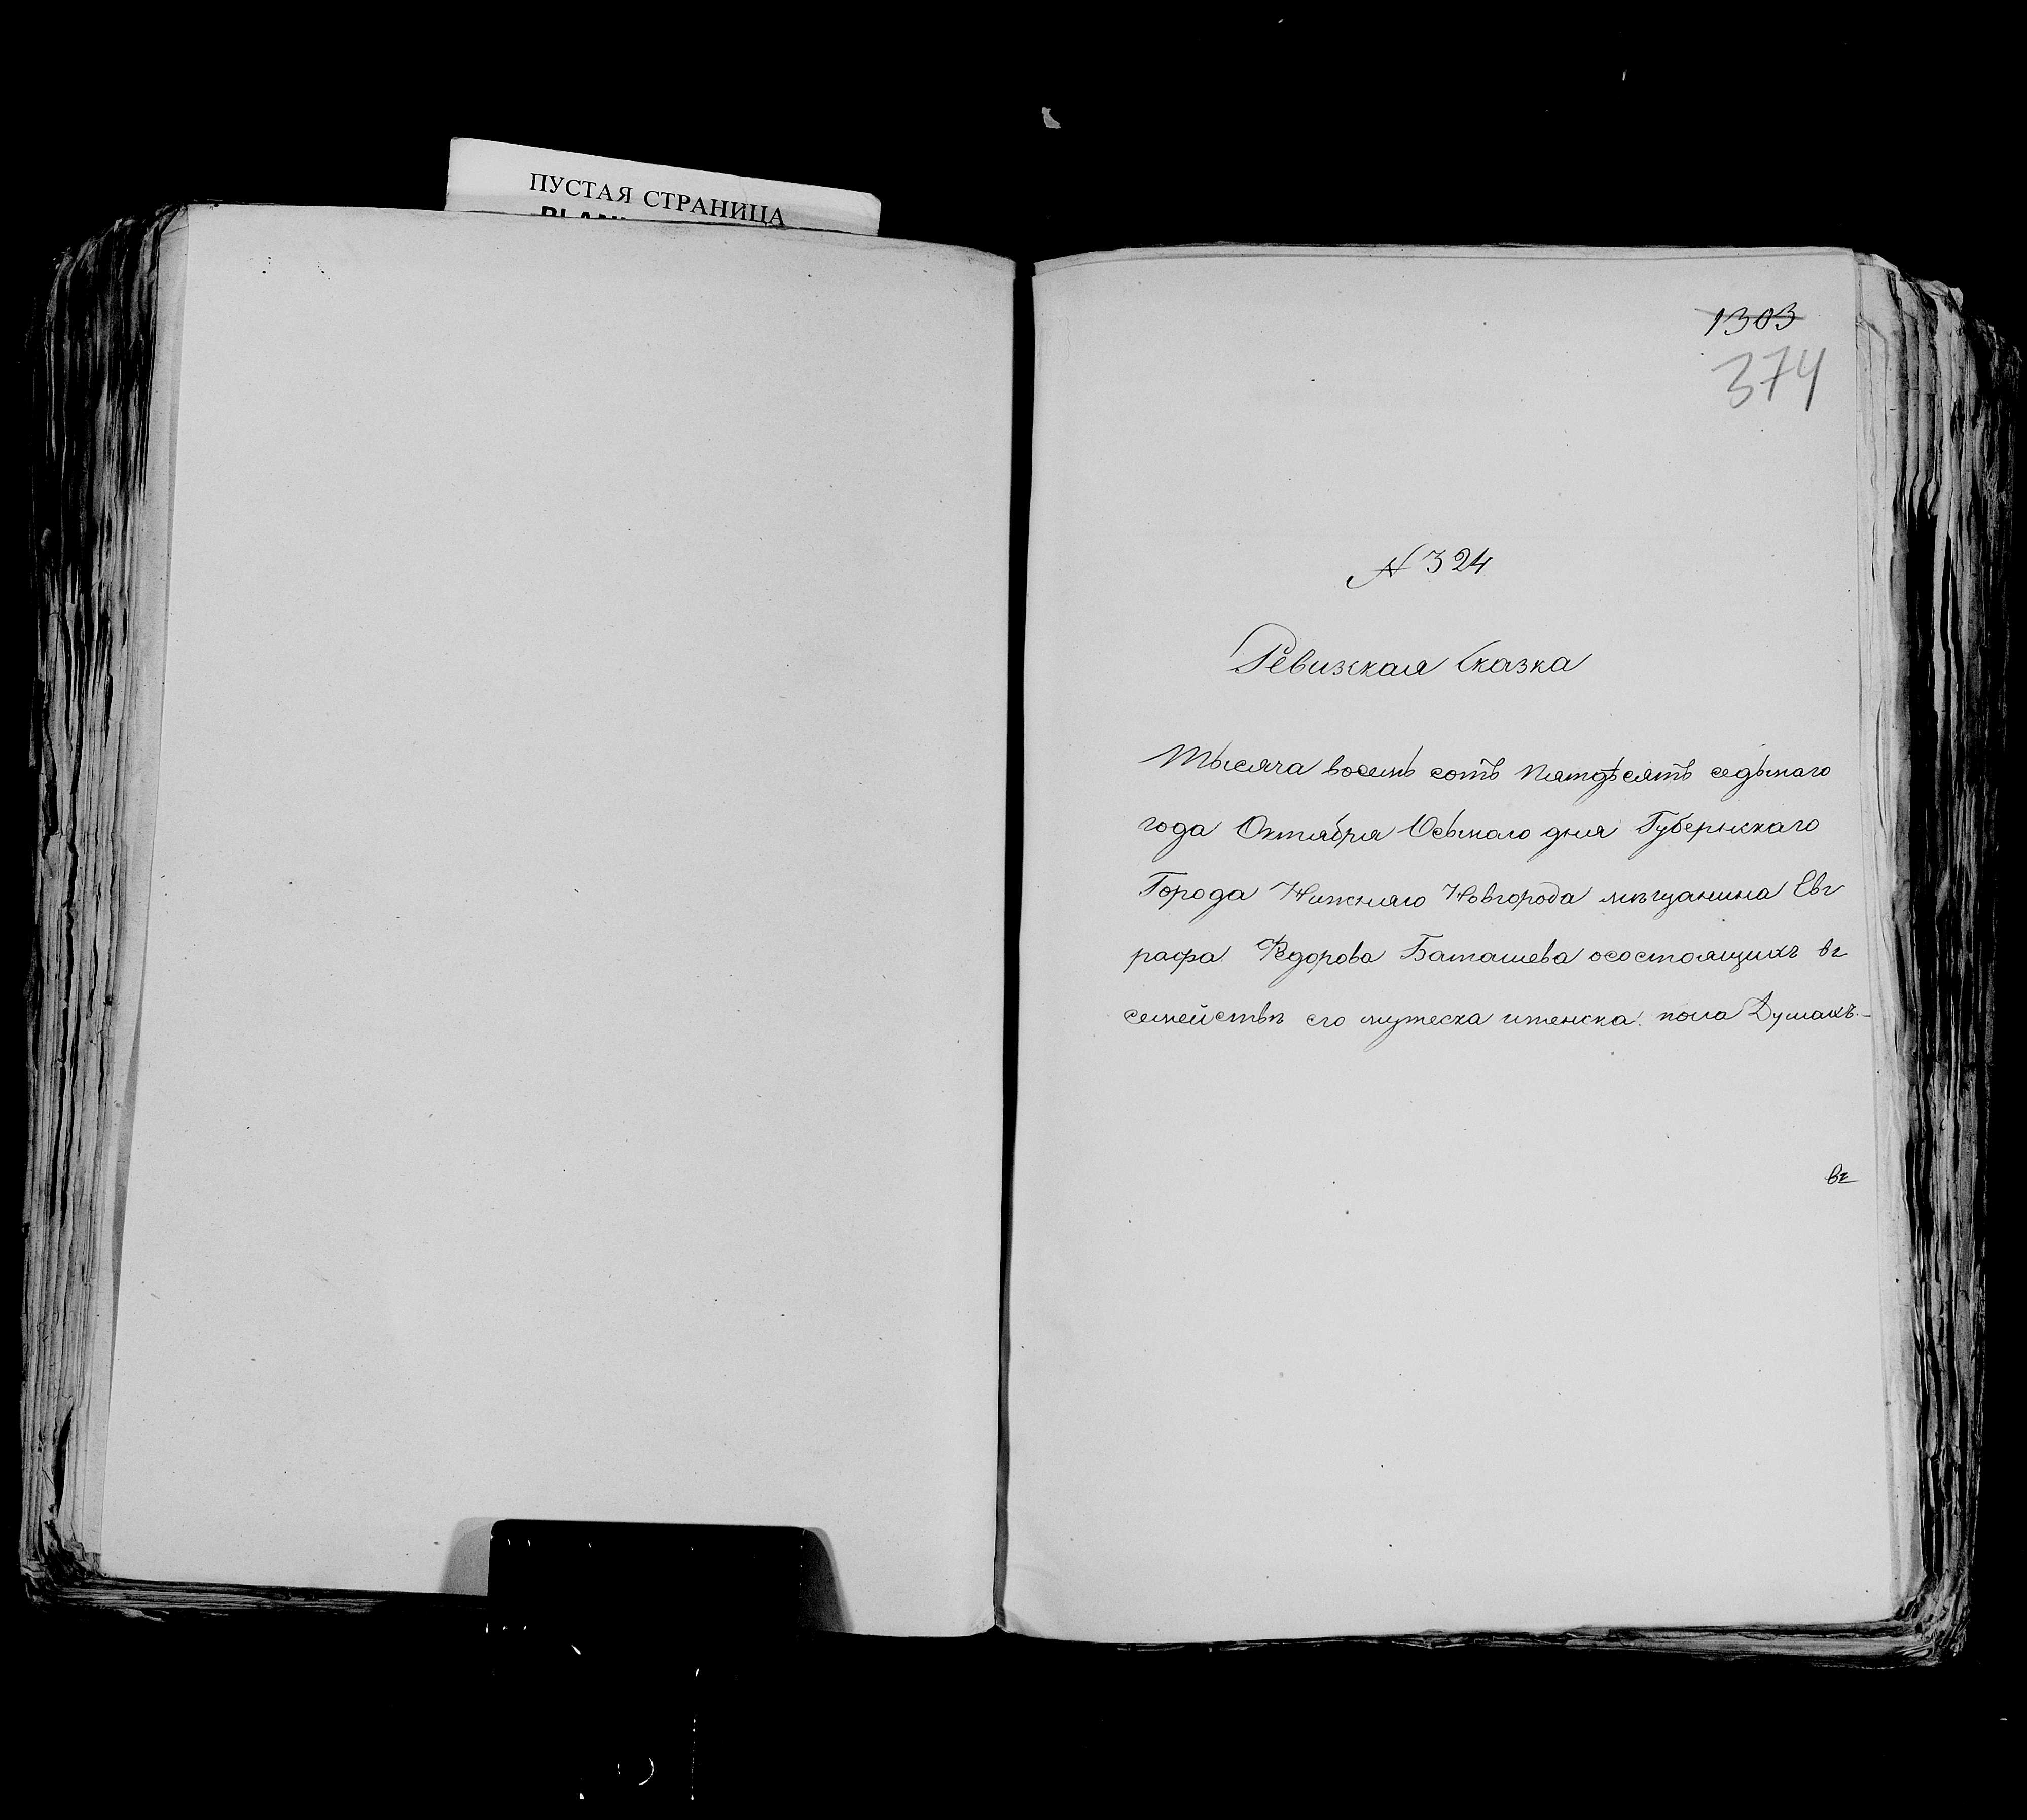 ПУСТАЯ СТРАНИЦА
1303
374
N 324
Ревизская Сказка
Тысяча восемь сотъ пятдѣсятъ седьмаго
года Октября Осьмаго дня Губернскаго
Города Нижняго Новгорода мѣщанина Евг
рафа Федорова Баташева осостоящихъ въ
семействѣ его мужеска иженска пола Душахъ.-
въ